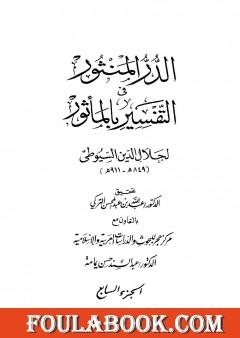 الدر المنثور
في
التفسير بالمأثور
لجلال الدين السيوطي
(٨٤٩هـ - ٩١١هـ)
تحقيق
الدكتور عبد الله بن عبد المحسن التركي
بالتعاون مع
مركز هجر للبحوث والدراسات العربية والإسلامية
الدكتور عبد السند حسن يمامة
الجزء السابع
FOULABOOK.COM